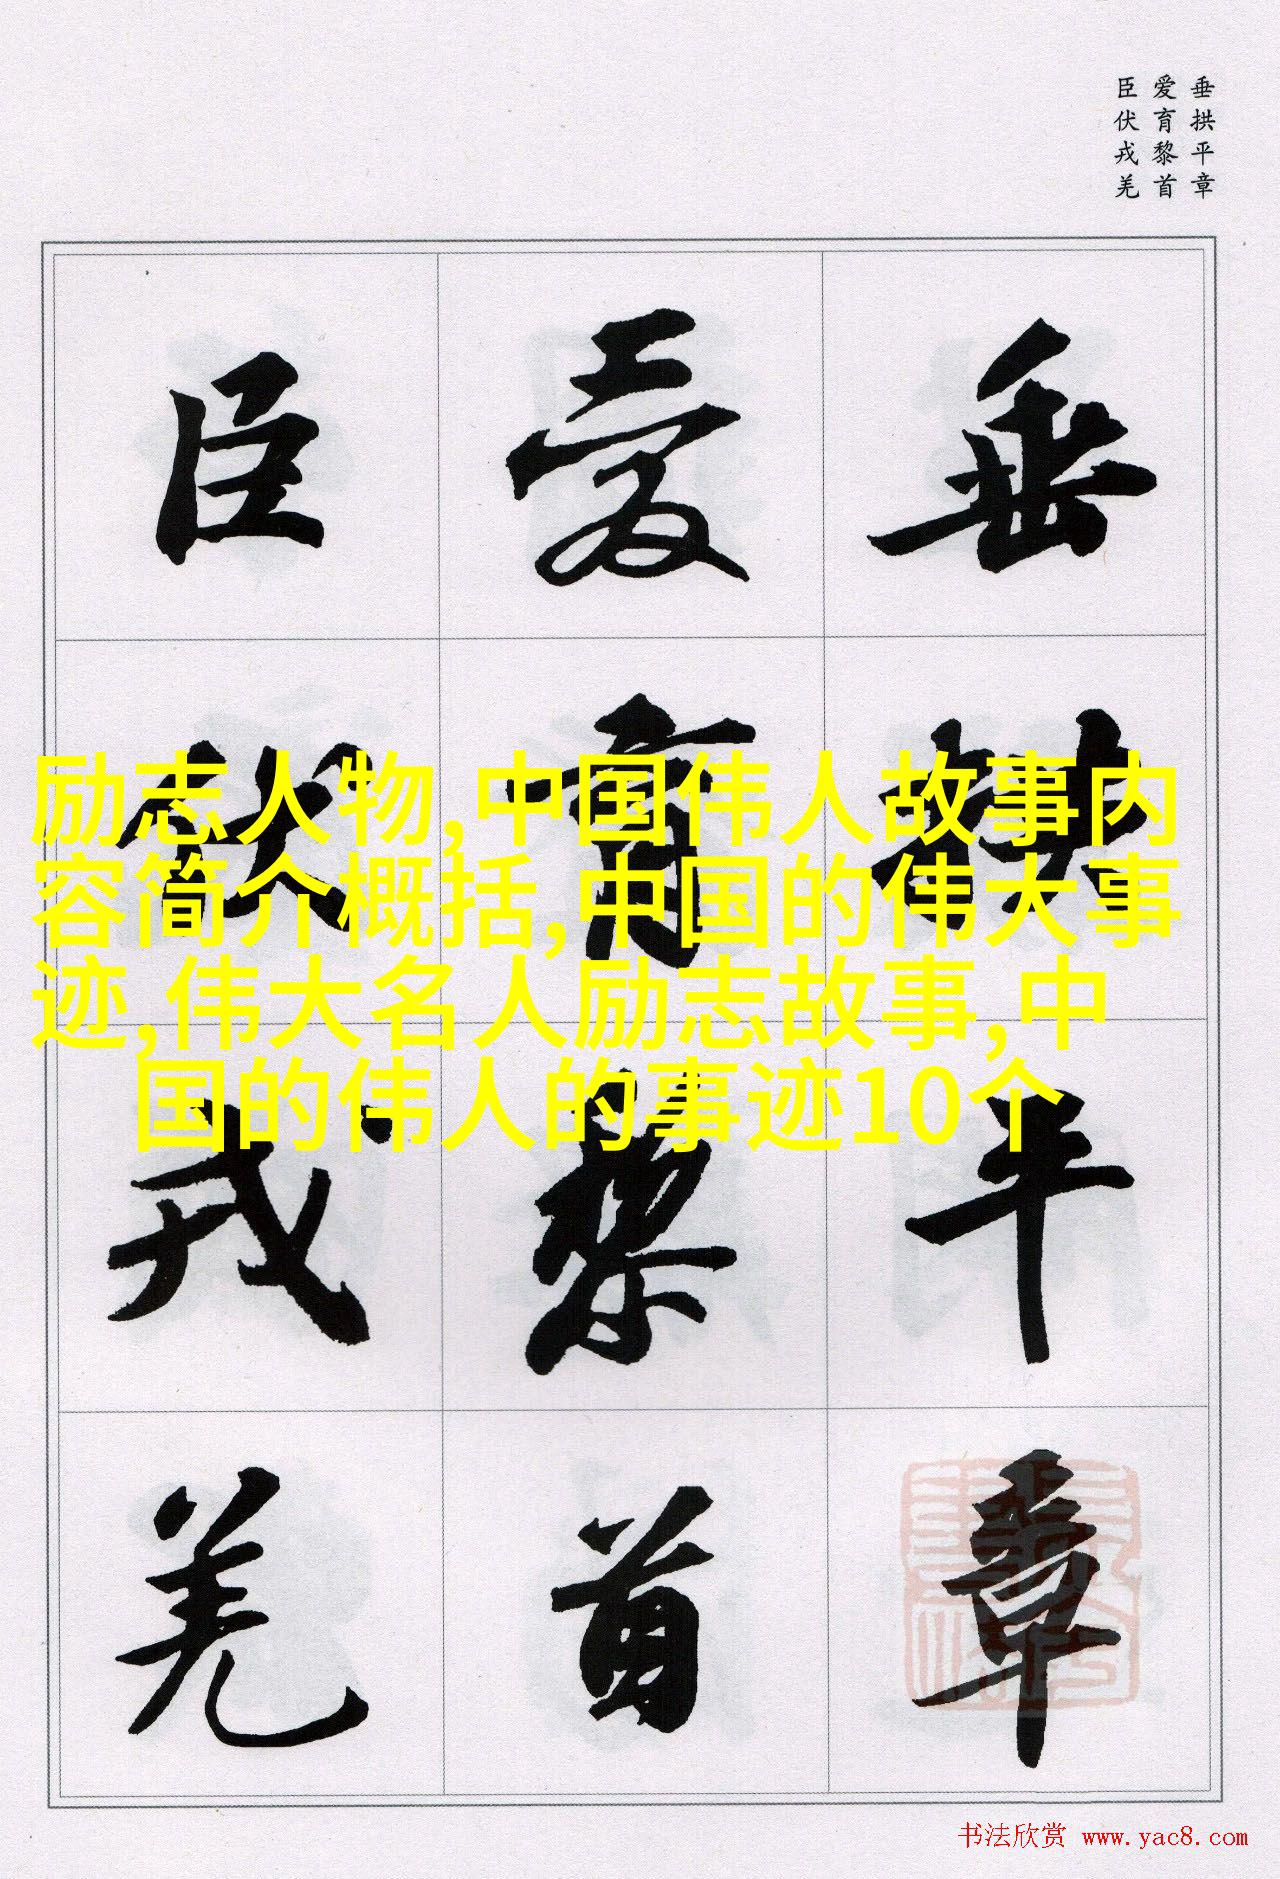 垂拱平章
爱育黎首
臣伏戎羌
垂拱平章
爱育黎首
臣伏戎羌
励志人物,中国伟人故事内
容简介概括,中国的伟大事
迹,伟大名人励志故事,中
国的伟人的事迹10个
书法欣赏 www.yac8.com